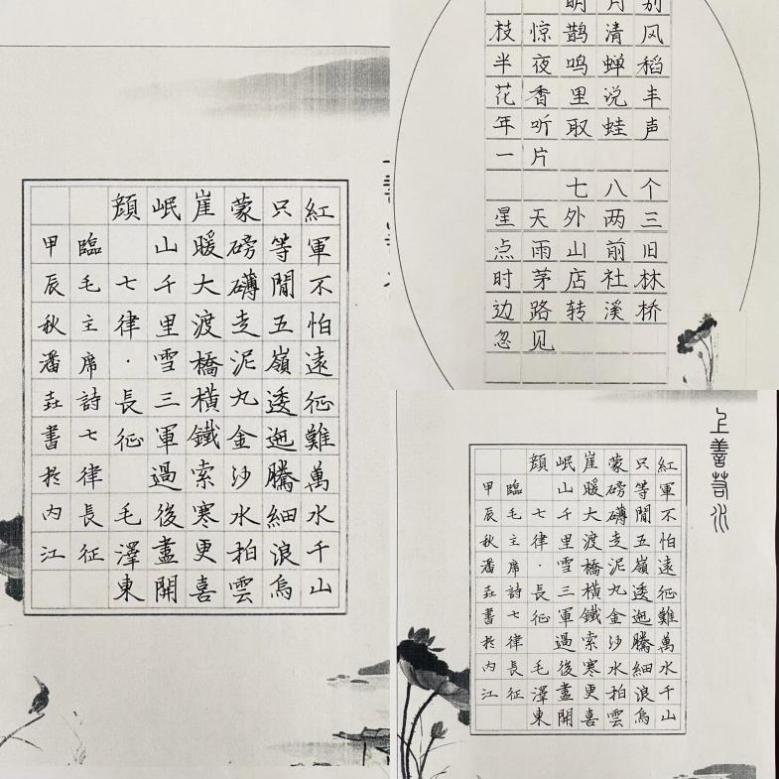 紅軍不怕遠征難萬水千山
只等閒五嶺逶迤騰細浪烏
蒙磅礴走泥丸金沙水拍雲
崖暖大渡橋橫鐵索寒更喜
岷山千里雪三軍過後盡開
顏 七律·長征 毛澤東
臨毛主席詩七律長征
甲辰秋潘垚書於內江
明月别
枝惊鹊清风
半夜鸣蝉稻
花香里说丰
年听取蛙声
一片
七八个
星天外两三
点雨山前旧
时茅店社林
边路转溪桥
忽见
上善若水
紅軍不怕遠征難萬水千山
只等閒五嶺逶迤騰細浪烏
蒙磅礴走泥丸金沙水拍雲
崖暖大渡橋橫鐵索寒更喜
岷山千里雪三軍過後盡開
顏 七律·長征 毛澤東
臨毛主席詩七律長征
甲辰秋潘垚書於內江